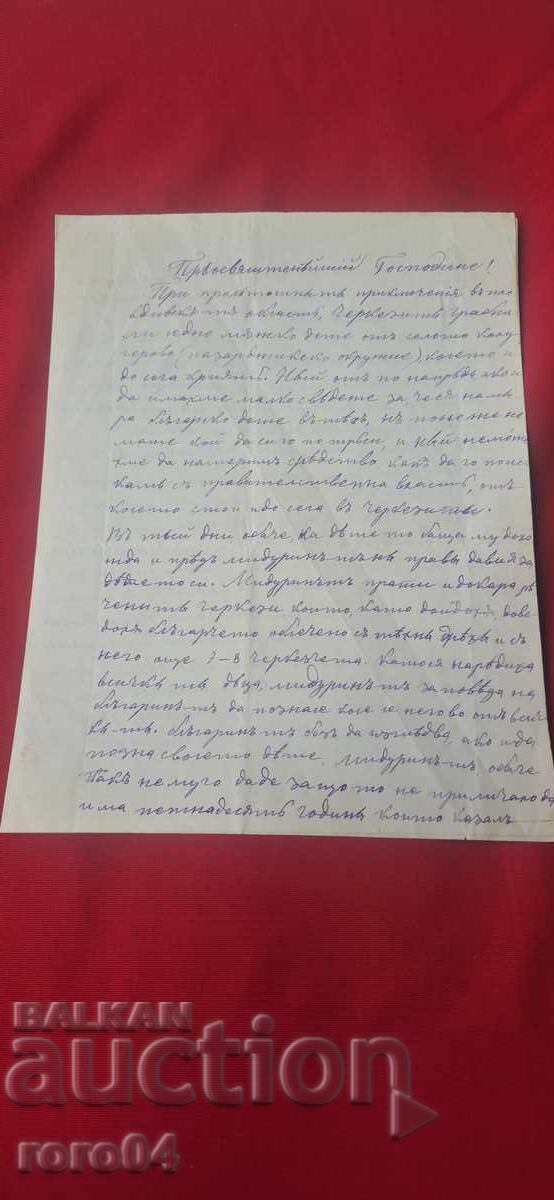 Прѣосвященнѣйшій Господине!
При пролѣтошнитѣ приключенія въ пло
вдивската область, Черкезитѣ грабна
ли едно мѫжко дете отъ селото Калу
герово (пазарджикско окружие) което и
до сега криятъ. Ный отъ по напрѣдъ ако и
да имахме малко свѣдене за, че ся нами
ра българско дете въ тѣхъ, нъ понеже не
маше кой да си го потърси, и ный немож
хме да намеримъ срѣдство какъ да го поис
каме съ правителственна власть, отъ
което стои и до сега въ черкезитѣ.
Въ тыя дни обаче на дѣтето баща му дохо
жда и прѣдъ мидуринътъ ни прави давия за
дѣтето си. Мидуринътъ прати и докара рѣ
ченитѣ черкези които, като дойдохѫ, дове
дохѫ българчето облечено съ тѣхни дрѣхи и съ
него още 7-8 черкезчета. Като ся наредиха
всички тия дѣца, мидуринътъ заповѣда на
българинътъ да познае кое е негово отъ всич
китѣ. Българинътъ безъ да изглѣдва, ако и да
позна своето дѣте, Мидуринътъ, обаче
пакъ не му го даде защото не приличало да
има петнадесять години които казалъ
BALKAN
auction
roro04